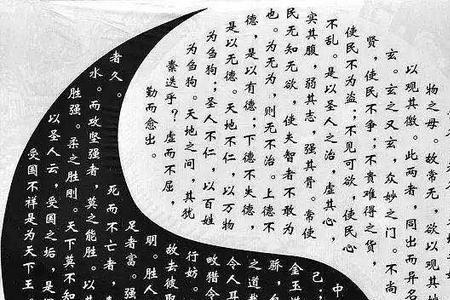 物之母 故常无，欲以观其
以观其徼。此两者，同出而异名
玄。玄之又玄，众妙之门。不尚
贤，使民不争；不贵难得之货，
使民不为盗；不见可欲，使民心
不乱。是以圣人之治，虚其心，
实其腹，弱其志，强其骨。常使
民无知无欲，使夫智者不敢为
也。为无为，则无不治。上德不
德，是以有德；下德不失德，
是以无德。天地不仁，以万物
为刍狗；圣人不仁，以百姓
为刍狗。天地之间，其犹
乎？虚而不屈，
而愈出。
中
己；
金玉
骄，
之道
令人耳
猎令
行妨
故去彼取
明。胜人
足者富。强
者久。 死而不亡者，
水。而攻坚强者，莫之能胜。以其
胜强。柔之胜刚。天下莫不知
以圣人云，受国之垢，是
受国不祥是为天下王